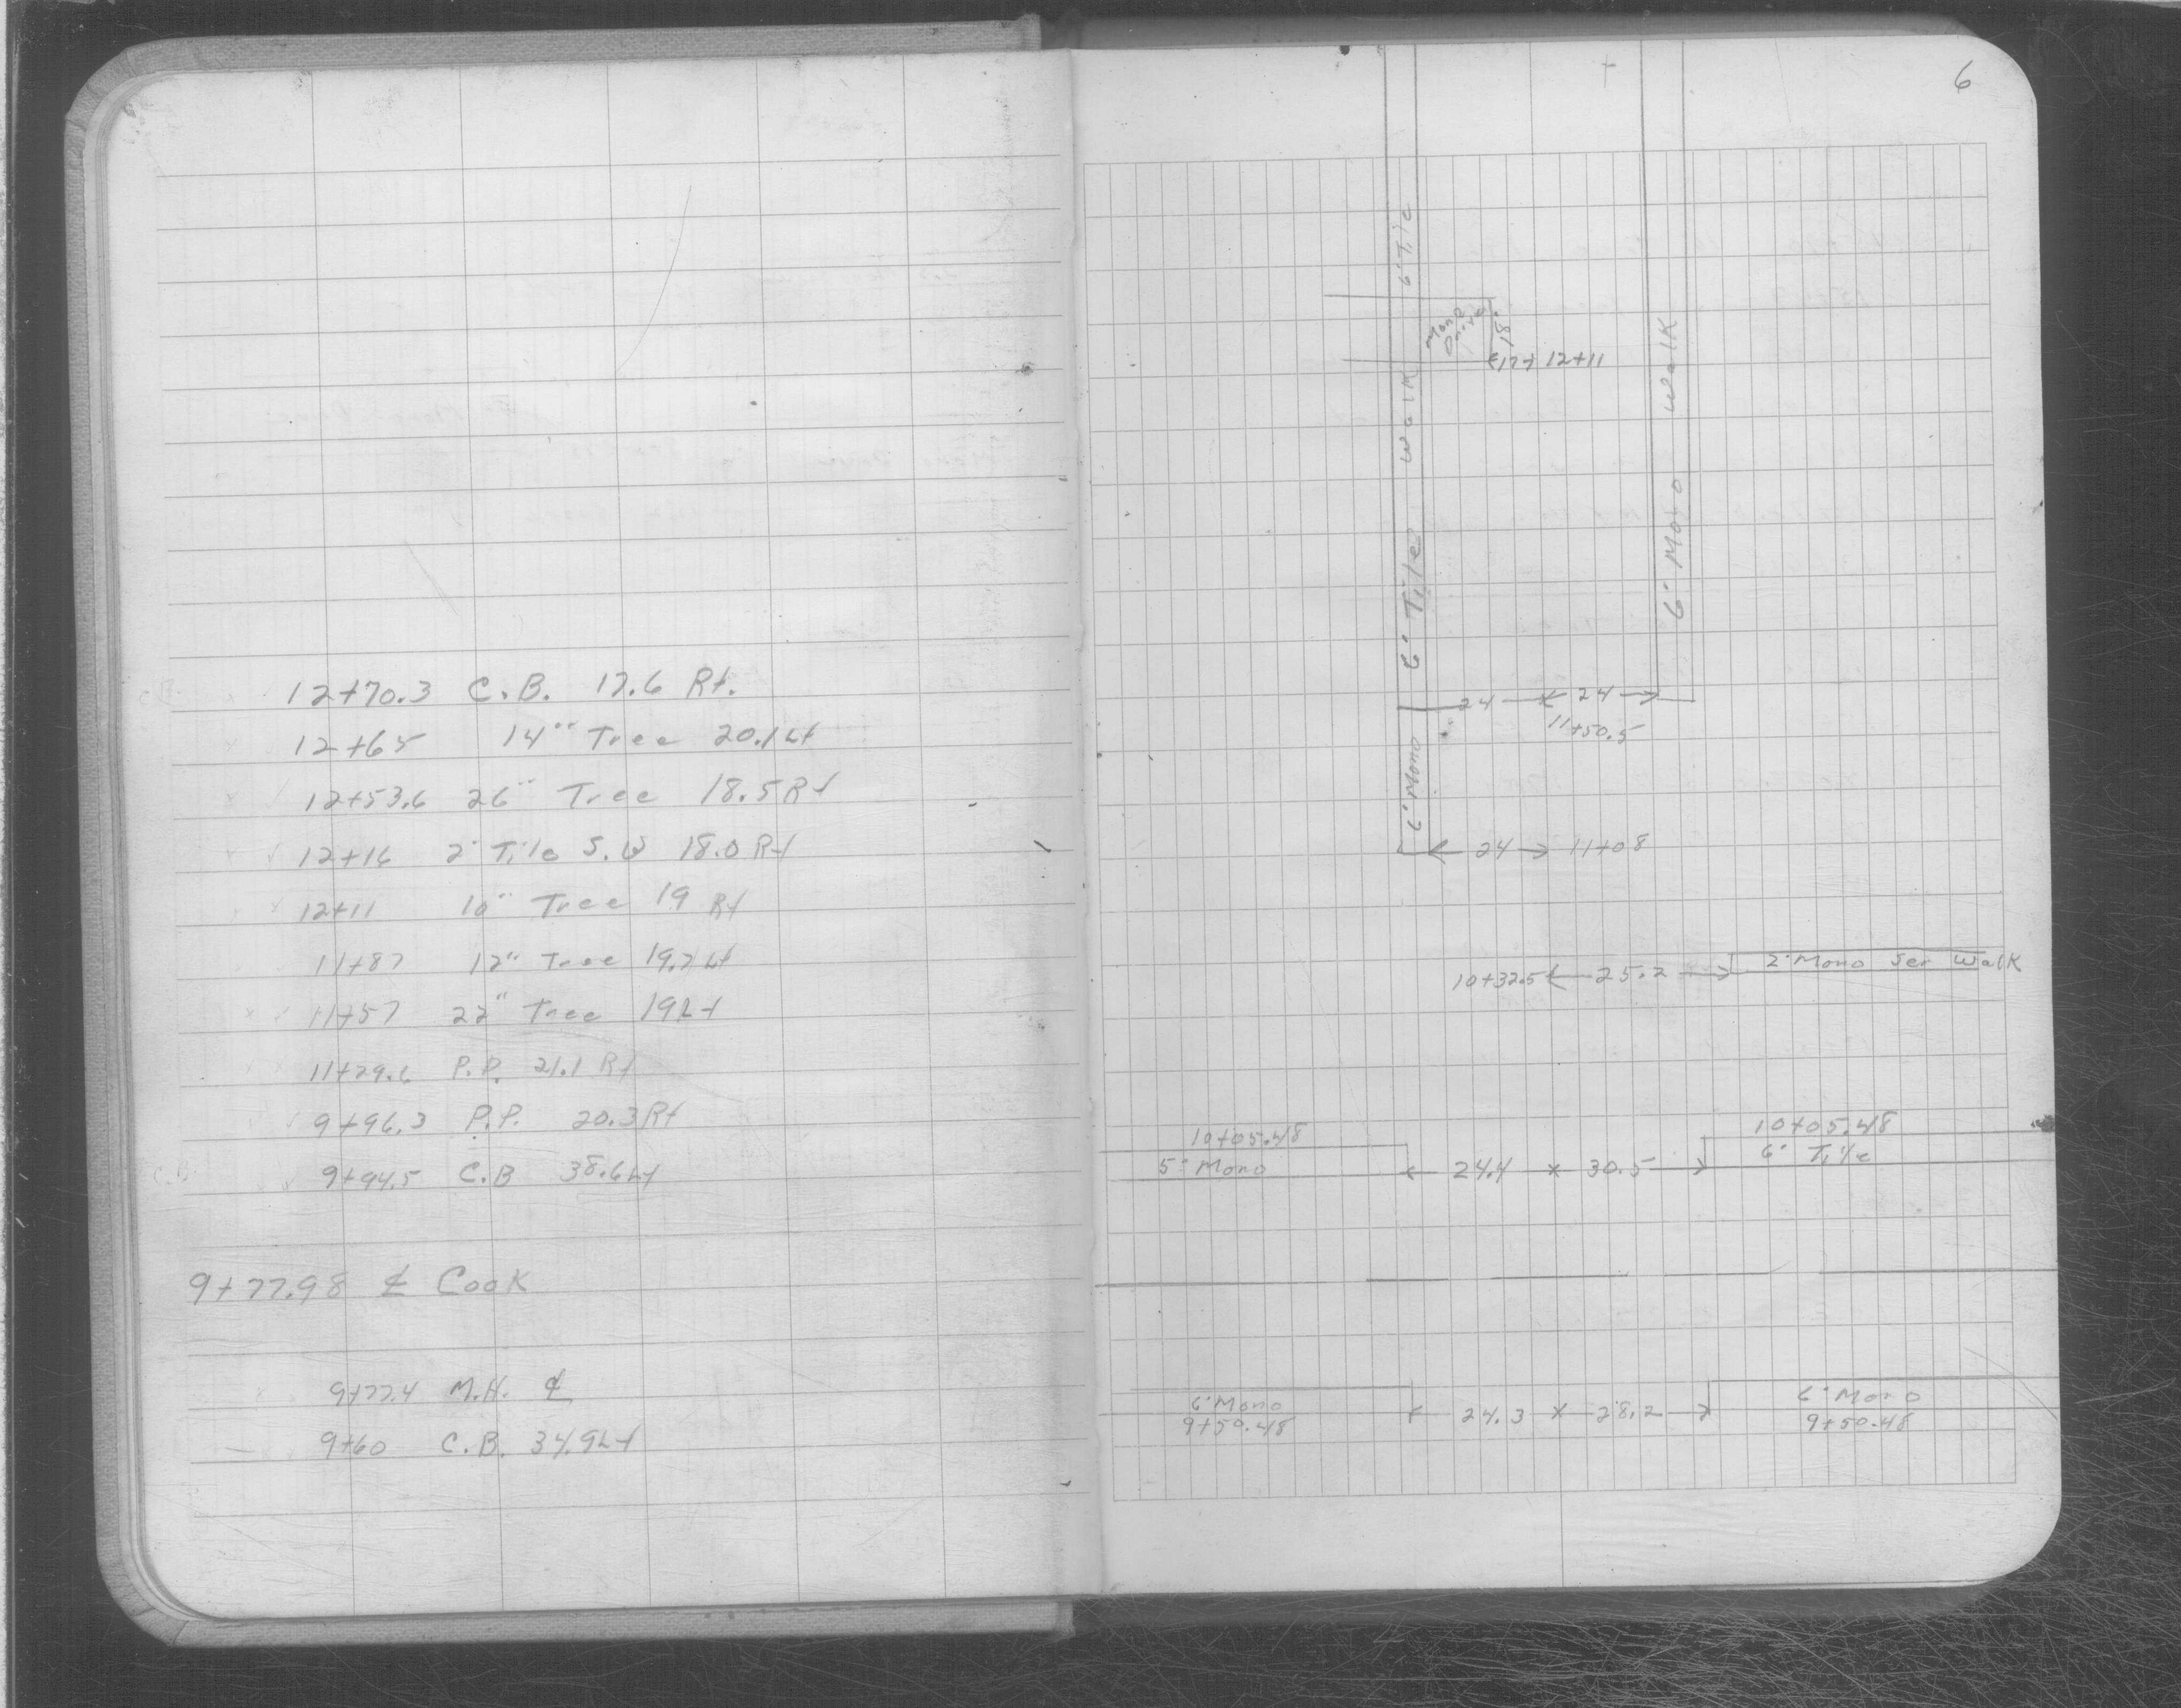 12+70.3 C.B. 17.6 Rt.
12+65 14" Tree 20.1 Lt
12+53.6 26" Tree 18.5 Rt
12+16 2' Tile S.W 18.0 Rt
12+11 10" Tree 19 Rt
11+87 12" Tree 19.7 Lt
11+57 22" Tree 19 Lt
11+29.6 P.P. 21.1 Rt
9+96.3 P.P. 20.3 Rt
9+94.5 C.B 38.6 Lt
9+77.98 ℄ Cook
9+77.4 M.H. ℄
9+60 C.B. 34.9 Lt
6
6' Tile
Mono Drive
18'
17 12+11
6' Tile Walk
6' Mono Walk
24 24
11+50.5
6' Mono
24 11+08
10+32.5 25.2 2' Mono Ser Walk
10+05.48
5' Mono
24.4 30.5
10+05.48
6' Tile
6' Mono
9+50.48
24.3 28.2
6' Mono
9+50.48